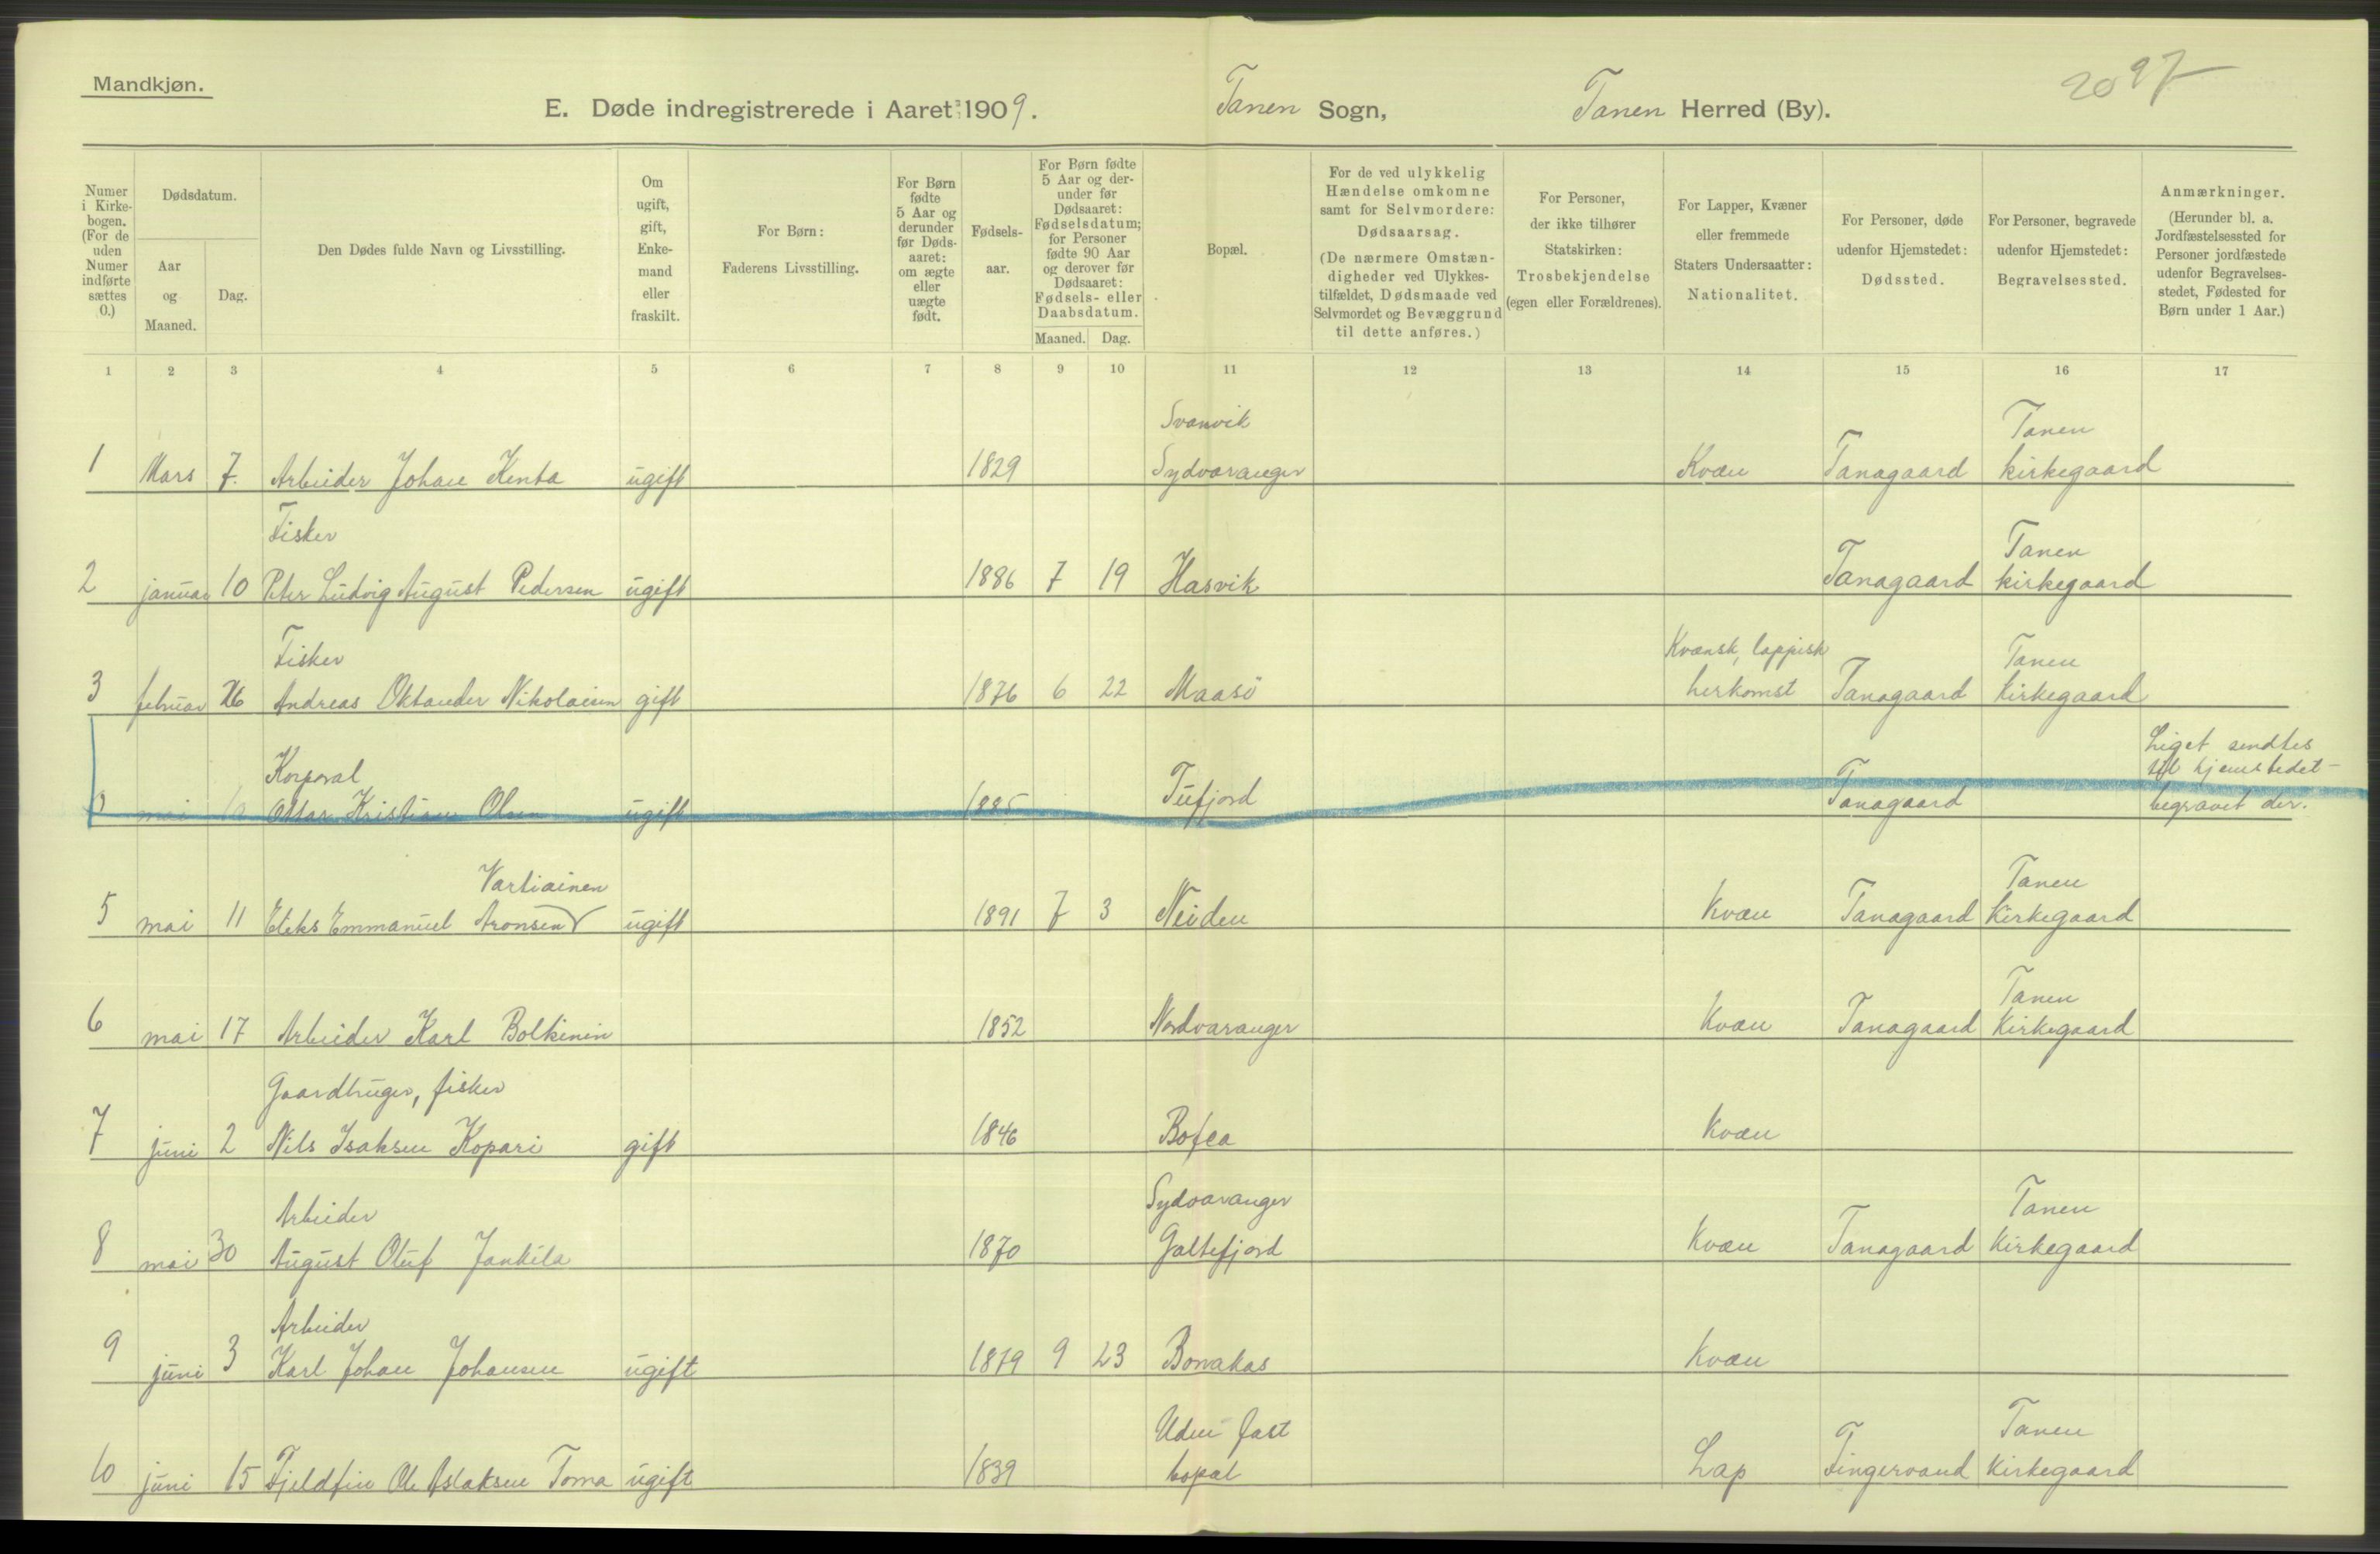 Mandkjøn.
2097
E. Døde indregistrerede i Aaret 1909. Tanen Sogn, Tanen Herred (By).
Numer i Kirke-bogen. (For de uden Numer indførte sættes 0.)
Dødsdatum.
Aar og Maaned.
Dag.
Den Dødes fulde Navn og Livsstilling.
Om ugift, gift, Enke-mand eller fraskilt.
For Børn: Faderens Livsstilling.
For Børn fødte 5 Aar og derunder før Døds-aaret: om ægte eller uægte født.
Fødsels-aar.
For Børn fødte 5 Aar og der-under før Dødsaaret: Fødselsdatum; for Personer fødte 90 Aar og derover før Dødsaaret: Fødsels- eller Daabsdatum.
Maaned. Dag.
Bopæl.
For de ved ulykkelig Hændelse omkomne samt for Selvmordere: Dødsaarsag. (De nærmere Omstæn-digheder ved Ulykkes-tilfældet, Dødsmaade ved Selvmordet og Bevæggrund til dette anføres.)
For Personer, der ikke tilhører Statskirken: Trosbekjendelse (egen eller Forældrenes).
For Lapper, Kvæner eller fremmede Staters Undersaatter: Nationalitet.
For Personer, døde udenfor Hjemstedet: Dødssted.
For Personer, begravede udenfor Hjemstedet: Begravelsessted.
Anmærkninger. (Herunder bl. a. Jordfæstelsessted for Personer jordfæstede udenfor Begravelses-stedet, Fødested for Børn under 1 Aar.)
1 2 3 4 5 6 7 8 9 10 11 12 13 14 15 16 17
Svanvik Tanen
1 Mars 7. Arbeider Johan Kenta ugift 1829 Sydvaranger Kvæn Tanagaard kirkegaard
Fisker Tanen
2 januar 10 Peter Ludvig August Pedersen ugift 1886 7 19 Hasvik Tanagaard kirkegaard
Fisker Kvænsk, lappisk Tanen
3 februar 26 Andreas Oktander Nikolaisen gift 1876 6 22 Maasö herkomst Tanagaard Kirkegaard
Korporal Liget sendtes til hjemstedet -
0 mai Ottar Kristian Olsen ugift 1885 Tufjord Tanagaard begravet der.
Vartiainen Tanen
5 mai 11 Emmanuel Aronsen ugift 1891 7 3 Neiden Kvæn Tanagaard Kirkegaard
Tanen
6 mai 17 Arbeider Karl Bolkinin 1852 Nordvaranger Kvæn Tanagaard Kirkegaard
Gaardbruger, fisker
7 juni 2 Nils Isaksen Kopari gift 1846 Kvæn
Arbeider Sydvaranger Tanen
8 mai 30 August Oluf Jankila 1870 Galtefjord Kvæn Tanagaard Kirkegaard
Arbeider
9 juni 3 Karl Johan Johansen ugift 1879 9 23 Bonakas Kvæn
Uden fast Tanen
10 juni 15 Fjeldfin Ole Aslaksen Torna ugift 1839 bopæl Lap Fingervand Kirkegaard